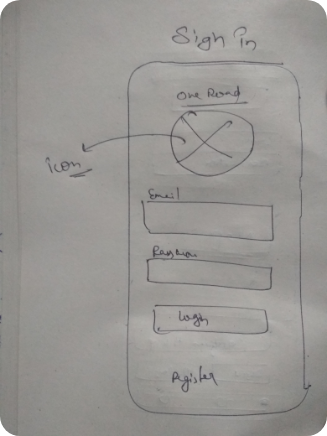 Sign in
One Road
icon
Email
Login
Register